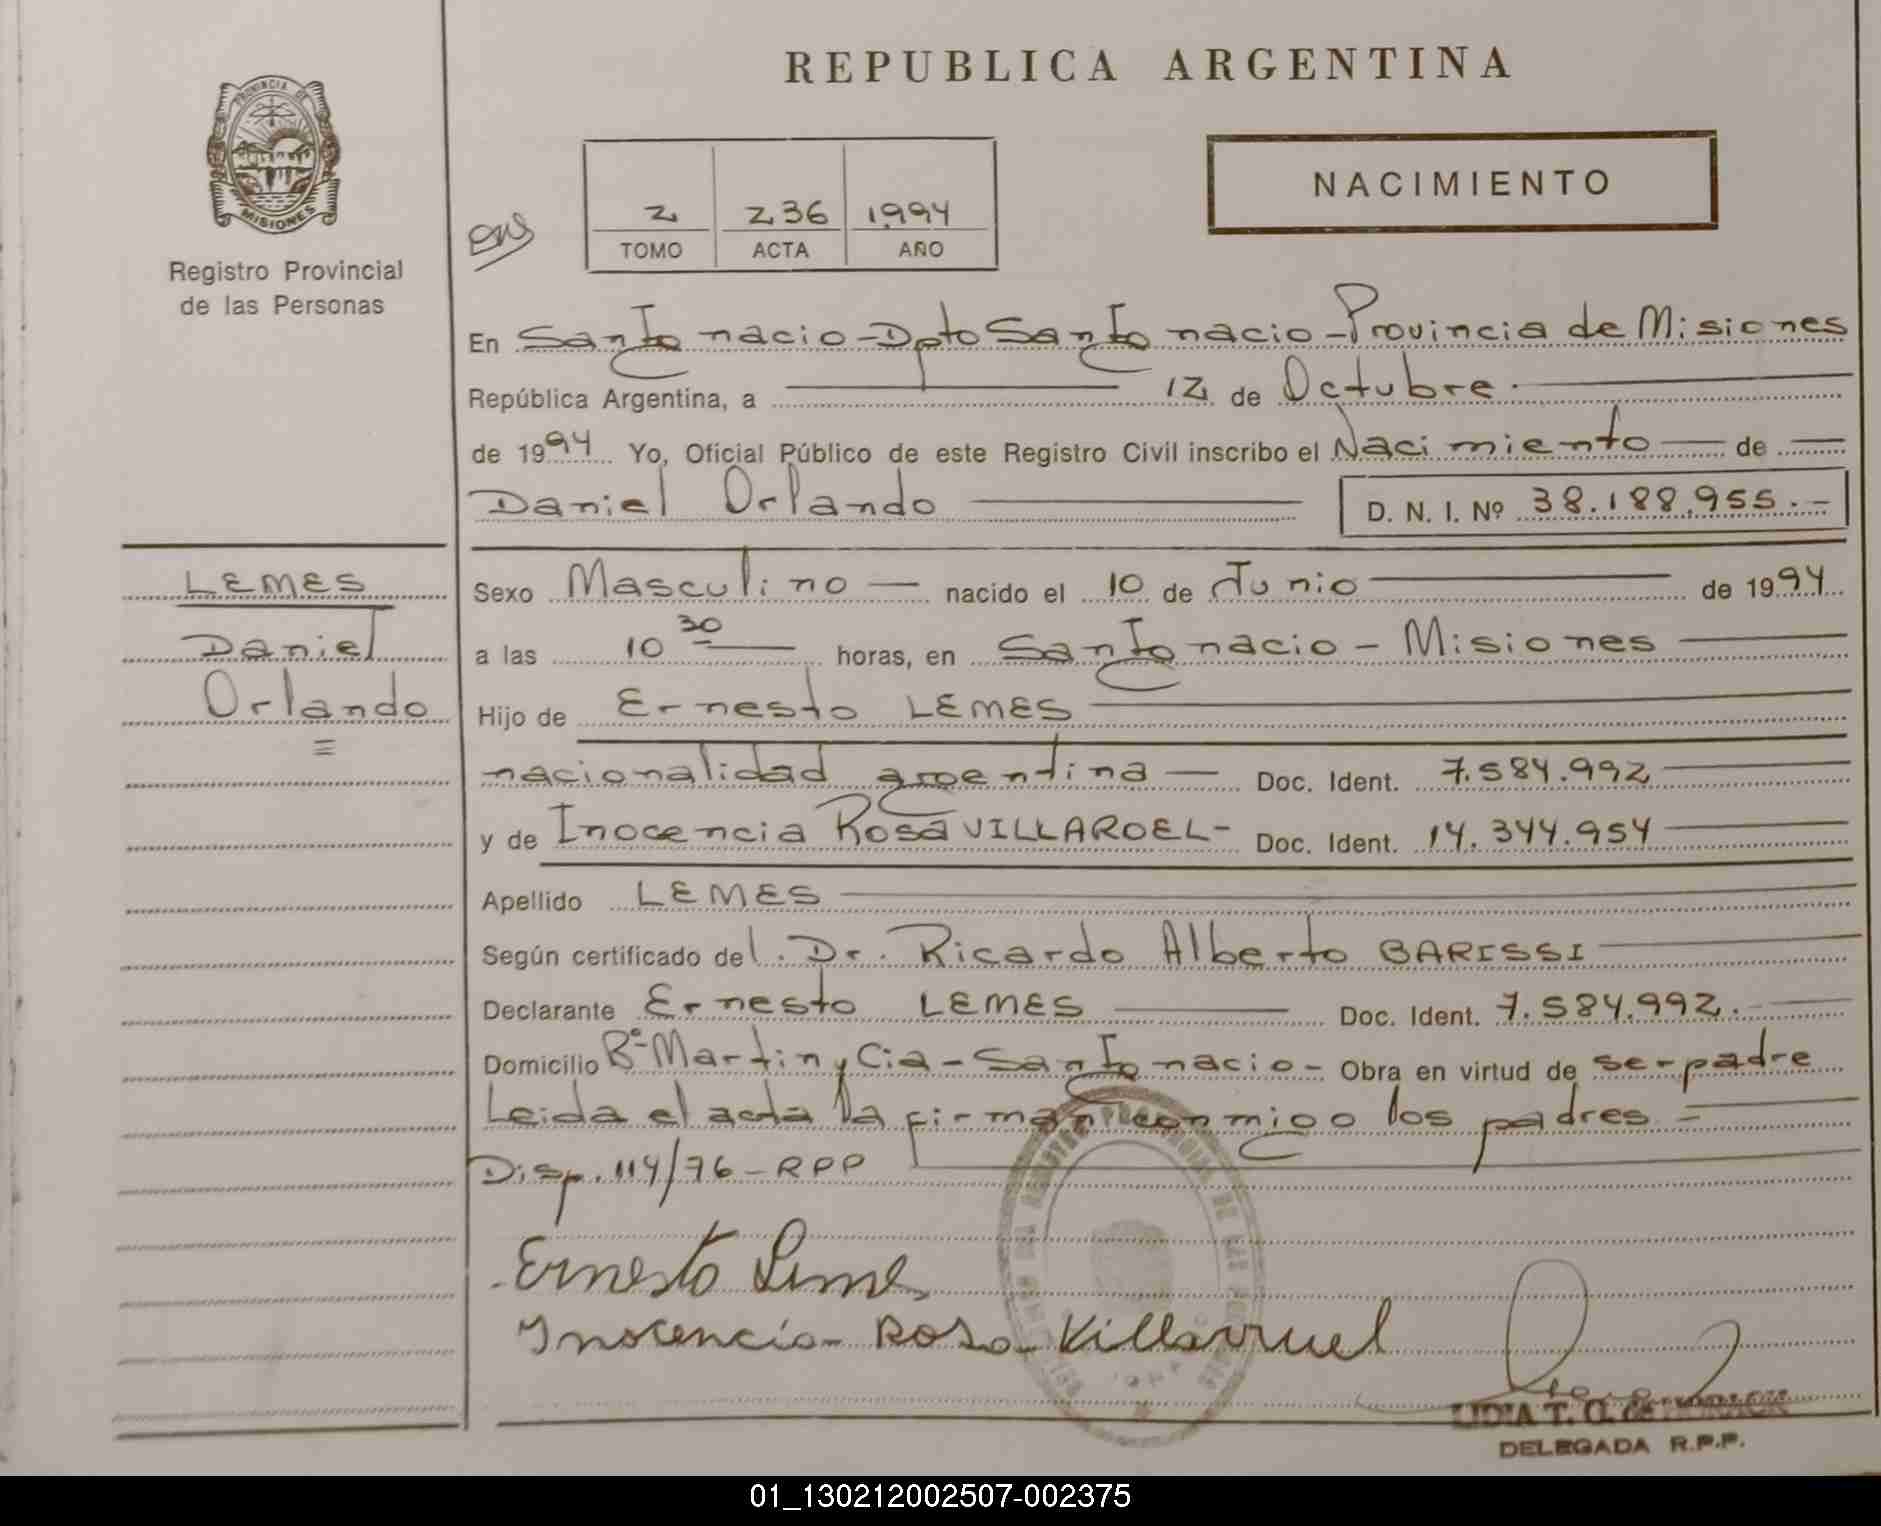 REPUBLICA ARGENTINA
PROVINCIA DE
MISIONES
Registro Provincial
de las Personas
2 236 1994
TOMO ACTA AÑO
NACIMIENTO
En San Ignacio - Dpto San Ignacio - Provincia de Misiones
República Argentina, a 12 de Octubre
de 1994 Yo, Oficial Público de este Registro Civil inscribo el Nacimiento de
Daniel Orlando D. N. I. Nº 38.188.955.-
LEMES
Daniel
Orlando
Sexo Masculino nacido el 10 de Junio de 1994
a las 10 30 horas, en San Ignacio - Misiones
Hijo de Ernesto LEMES
nacionalidad argentina Doc. Ident. 7.584.992
y de Inocencia Rosa VILLAROEL - Doc. Ident. 14.344.954
Apellido LEMES
Según certificado del Dr. Ricardo Alberto BARISSI
Declarante Ernesto LEMES Doc. Ident. 7.584.992.
Domicilio Bº Martin y Cia - San Ignacio - Obra en virtud de ser padre
Leida el acta la firman conmigo los padres -
Disp. 114/76 - RPP
Ernesto Leme
Inocencia Rosa Villarruel
LIDIA T. O. de
DELEGADA R.P.P.
01_130212002507-002375